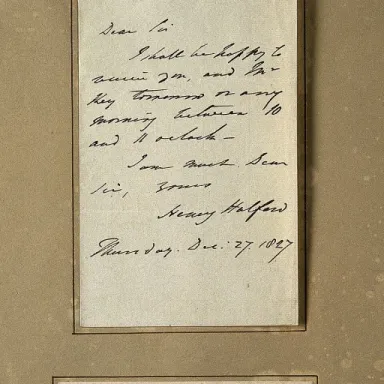 Dear Sir
I shall be happy to
receive you, and Mr
Key tomorrow or any
morning between 10
and 11 oclock—
I am most Dear
Sir, Yours
Henry Halford
Thursday. Dec: 27. 1827